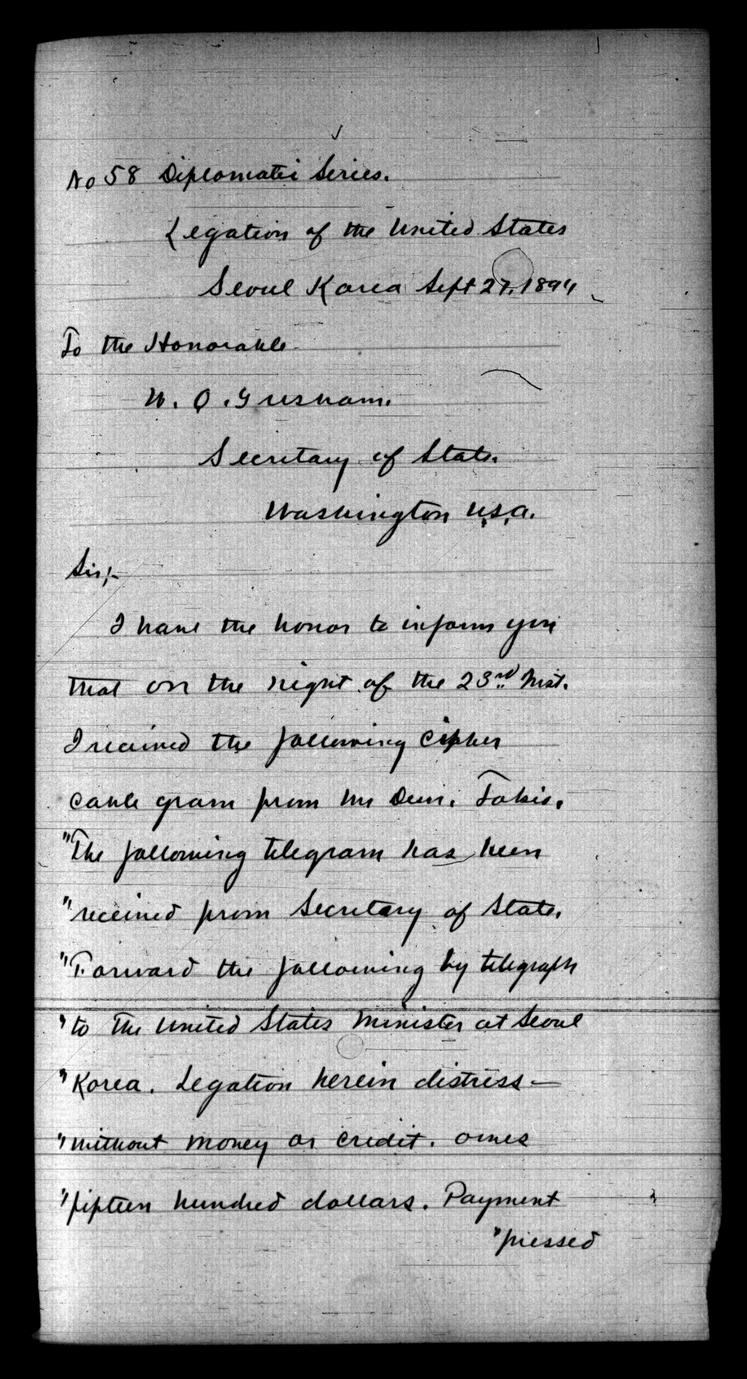 No 58 Diplomatic Series.
Legation of the United States
Seoul Korea Sept 27, 1894
To the Honorable
W. Q. Gresham.
Secretary of State.
Washington U.S.A.
Sir;-
I have the honor to inform you
that on the night of the 23rd Inst.
I received the following cipher
cable gram from Mr Dun. Tokio.
"The following telegram has been
"received from Secretary of State.
"Forward the following by telegraph
"to the United States Minister at Seoul
"Korea. Legation herein distress—
"without money or credit. owes
"fifteen hundred dollars. Payment
"pressed